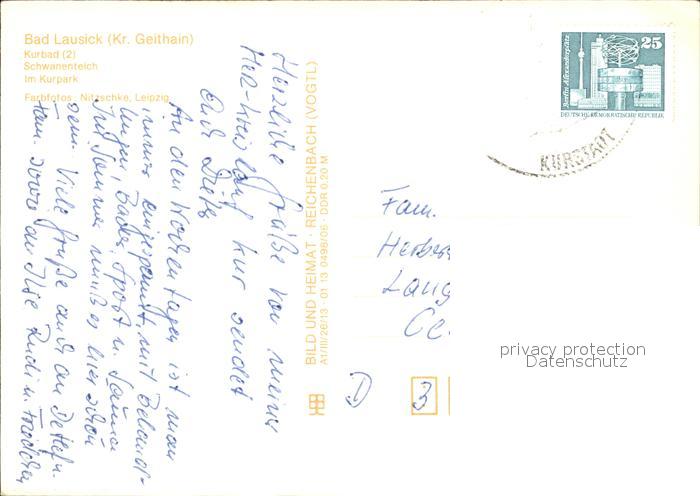 Bad Lausick (Kr. Geithain)
Kurbad (2)
Schwanenteich
Im Kurpark
Farbfotos: Nitzschke, Leipzig
Herzliche Grüße von meiner
Herz-Kreislauf Kur sendet
Euch
An den Wochentagen ist man
immer eingespannt, mit Behand-
lungen, Bäder, Sport u. Sauna
Im Sommer muß es hier schön
sein. Viele Grüße auch an Detlef u.
Fam. sowie an Ilse Rudi u.
BILD UND HEIMAT · REICHENBACH (VOGTL)
A1/III/26/13 · 01 13 0498/06 · DDR 0,20 M
25
Berlin, Alexanderplatz
DEUTSCHE DEMOKRATISCHE REPUBLIK
KURSTADT
Fam.
Herber
Lang
D 3
privacy protection
Datenschutz